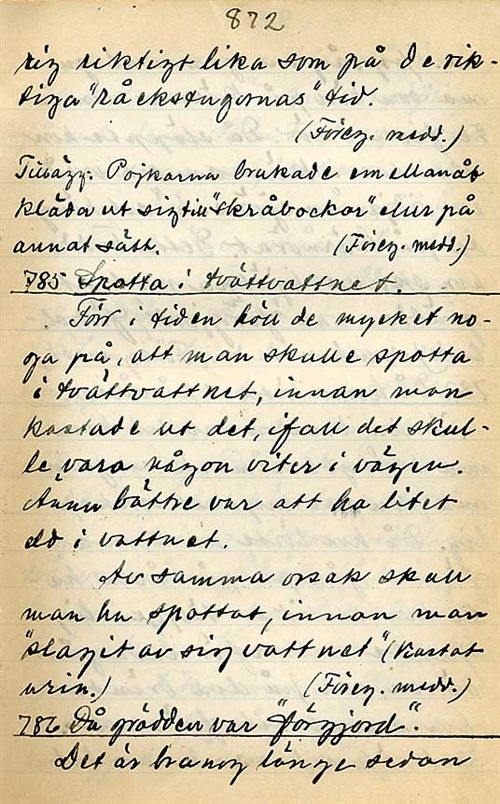 872
sig riktigt lika som på de rik-
tiga "råckstugornas" tid.
(Föreg. medd.)
Tillägg: Pojkarna brukade emellanåt
kläda ut sig till "skråbockar" eller på
annat sätt. (Föreg. medd.)
785 Spotta i tvättvattnet.
Förr i tiden höll de mycket no-
ga på, att man skulle spotta
i tvättvattnet, innan man
kastade ut det, ifall det skul-
le vara någon viter i vägen.
Ännu bättre var att ha litet
eld i vattnet.
Av samma orsak skall
man ha spottat, innan man
"slagit av sig vattnet" (kastat
urin.) (Föreg. medd.)
786 Då grädden var "förgjord".
Det är bra nog länge sedan